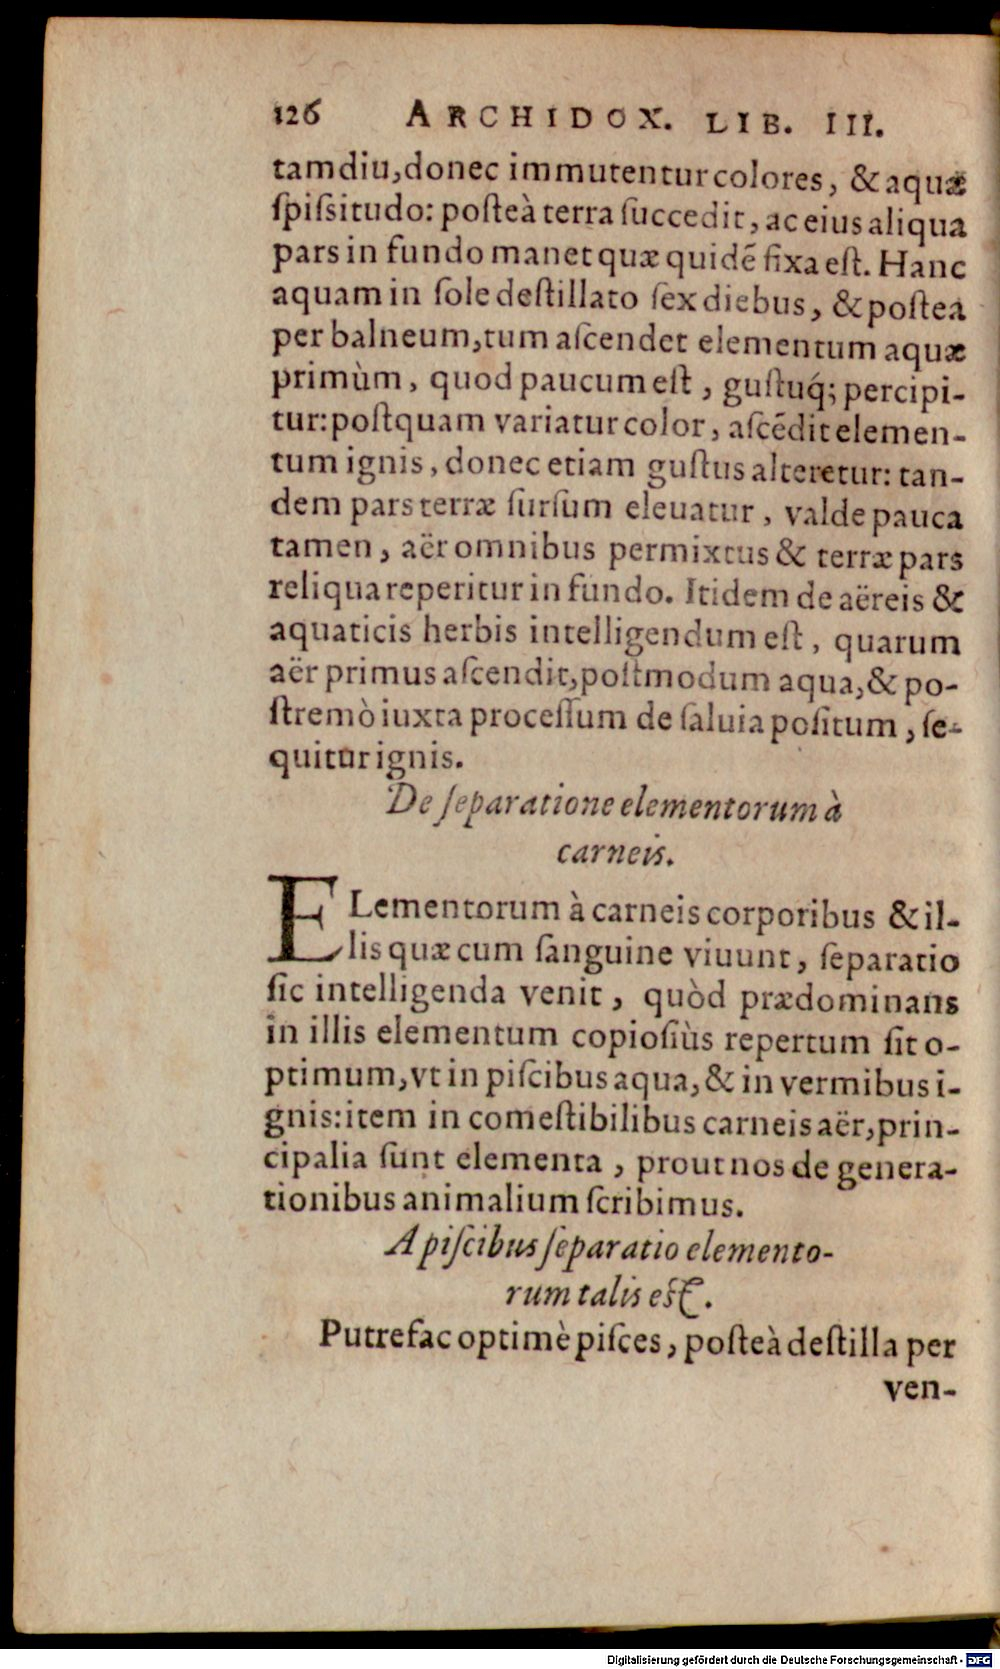 126 ARCHIDOX. LIB. III.
tamdiu, donec immutentur colores, & aquæ
ſpiſsitudo: poſteà terra ſuccedit, ac eius aliqua
pars in fundo manet quæ quidē fixa eſt. Hanc
aquam in ſole deſtillato ſex diebus, & poſtea
per balneum, tum aſcendet elementum aquæ
primùm, quod paucum eſt, guſtuq́; percipi-
tur: poſtquam variatur color, aſcēdit elemen-
tum ignis, donec etiam guſtus alteretur: tan-
dem pars terræ ſurſum eleuatur, valde pauca
tamen, aër omnibus permixtus & terræ pars
reliqua reperitur in fundo. Itidem de aëreis &
aquaticis herbis intelligendum eſt, quarum
aër primus aſcendit, poſtmodum aqua, & po-
ſtremò iuxta proceſſum de ſaluia poſitum, ſe-
quitur ignis.
De ſeparatione elementorum à
carneis.
ELementorum à carneis corporibus & il-
lis quæ cum ſanguine viuunt, ſeparatio
ſic intelligenda venit, quòd prædominans
in illis elementum copioſiùs repertum ſit o-
ptimum, vt in piſcibus aqua, & in vermibus i-
gnis: item in comeſtibilibus carneis aër, prin-
cipalia ſunt elementa, prout nos de genera-
tionibus animalium ſcribimus.
A piſcibus ſeparatio elemento-
rum talis eſt.
Putrefac optimè piſces, poſteà deſtilla per
ven-
Digitalisierung gefördert durch die Deutsche Forschungsgemeinschaft - DFG